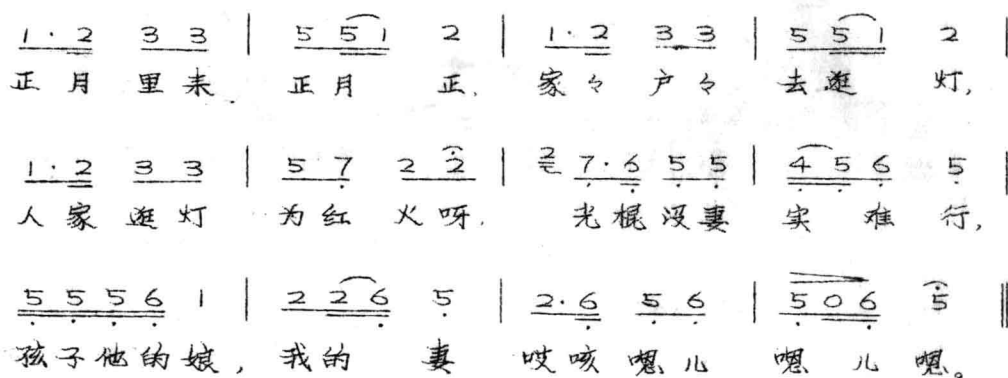 1·2 3 3 | 5 5 1 2 | 1·2 3 3 | 5 5 1 2 |
正月里来 正月 正, 家々户々 去逛 灯,
1·2 3 3 | 5 7 2 2 | 2 7·6 5 5 | 4 5 6 5
人家逛灯 为红火呀, 光棍没妻 实难行,
5 5 5 6 1 | 2 2 6 5 | 2·6 5 6 | 5 0 6 5 ‖
孩子他的娘, 我的 妻 哎咳嗯儿 嗯儿嗯。